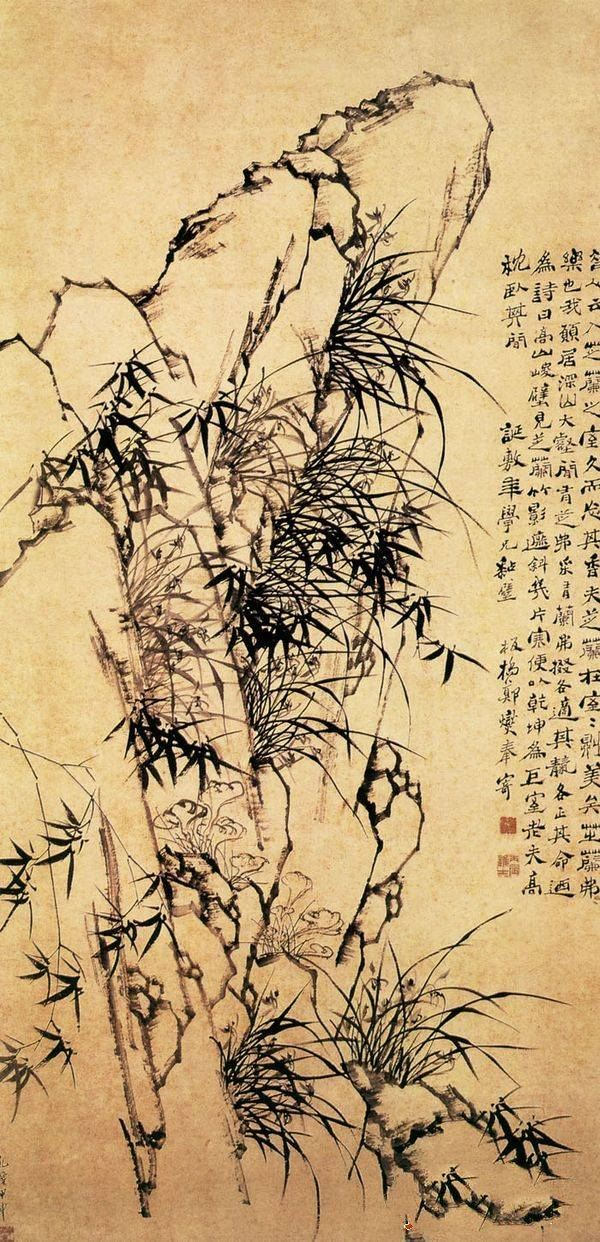 昔人云入芝蘭之室久而忘其香夫芝蘭在室〻則美矣芝蘭弗
樂也我願居深山大壑間有芝弗采有蘭弗掇各適其各正其命迺
為詩曰高山峻壁見芝蘭竹影遮斜幾片寒便以乾坤為巨室老夫高
枕臥其間 誕敷年學兄 板橋鄭燮奉寄